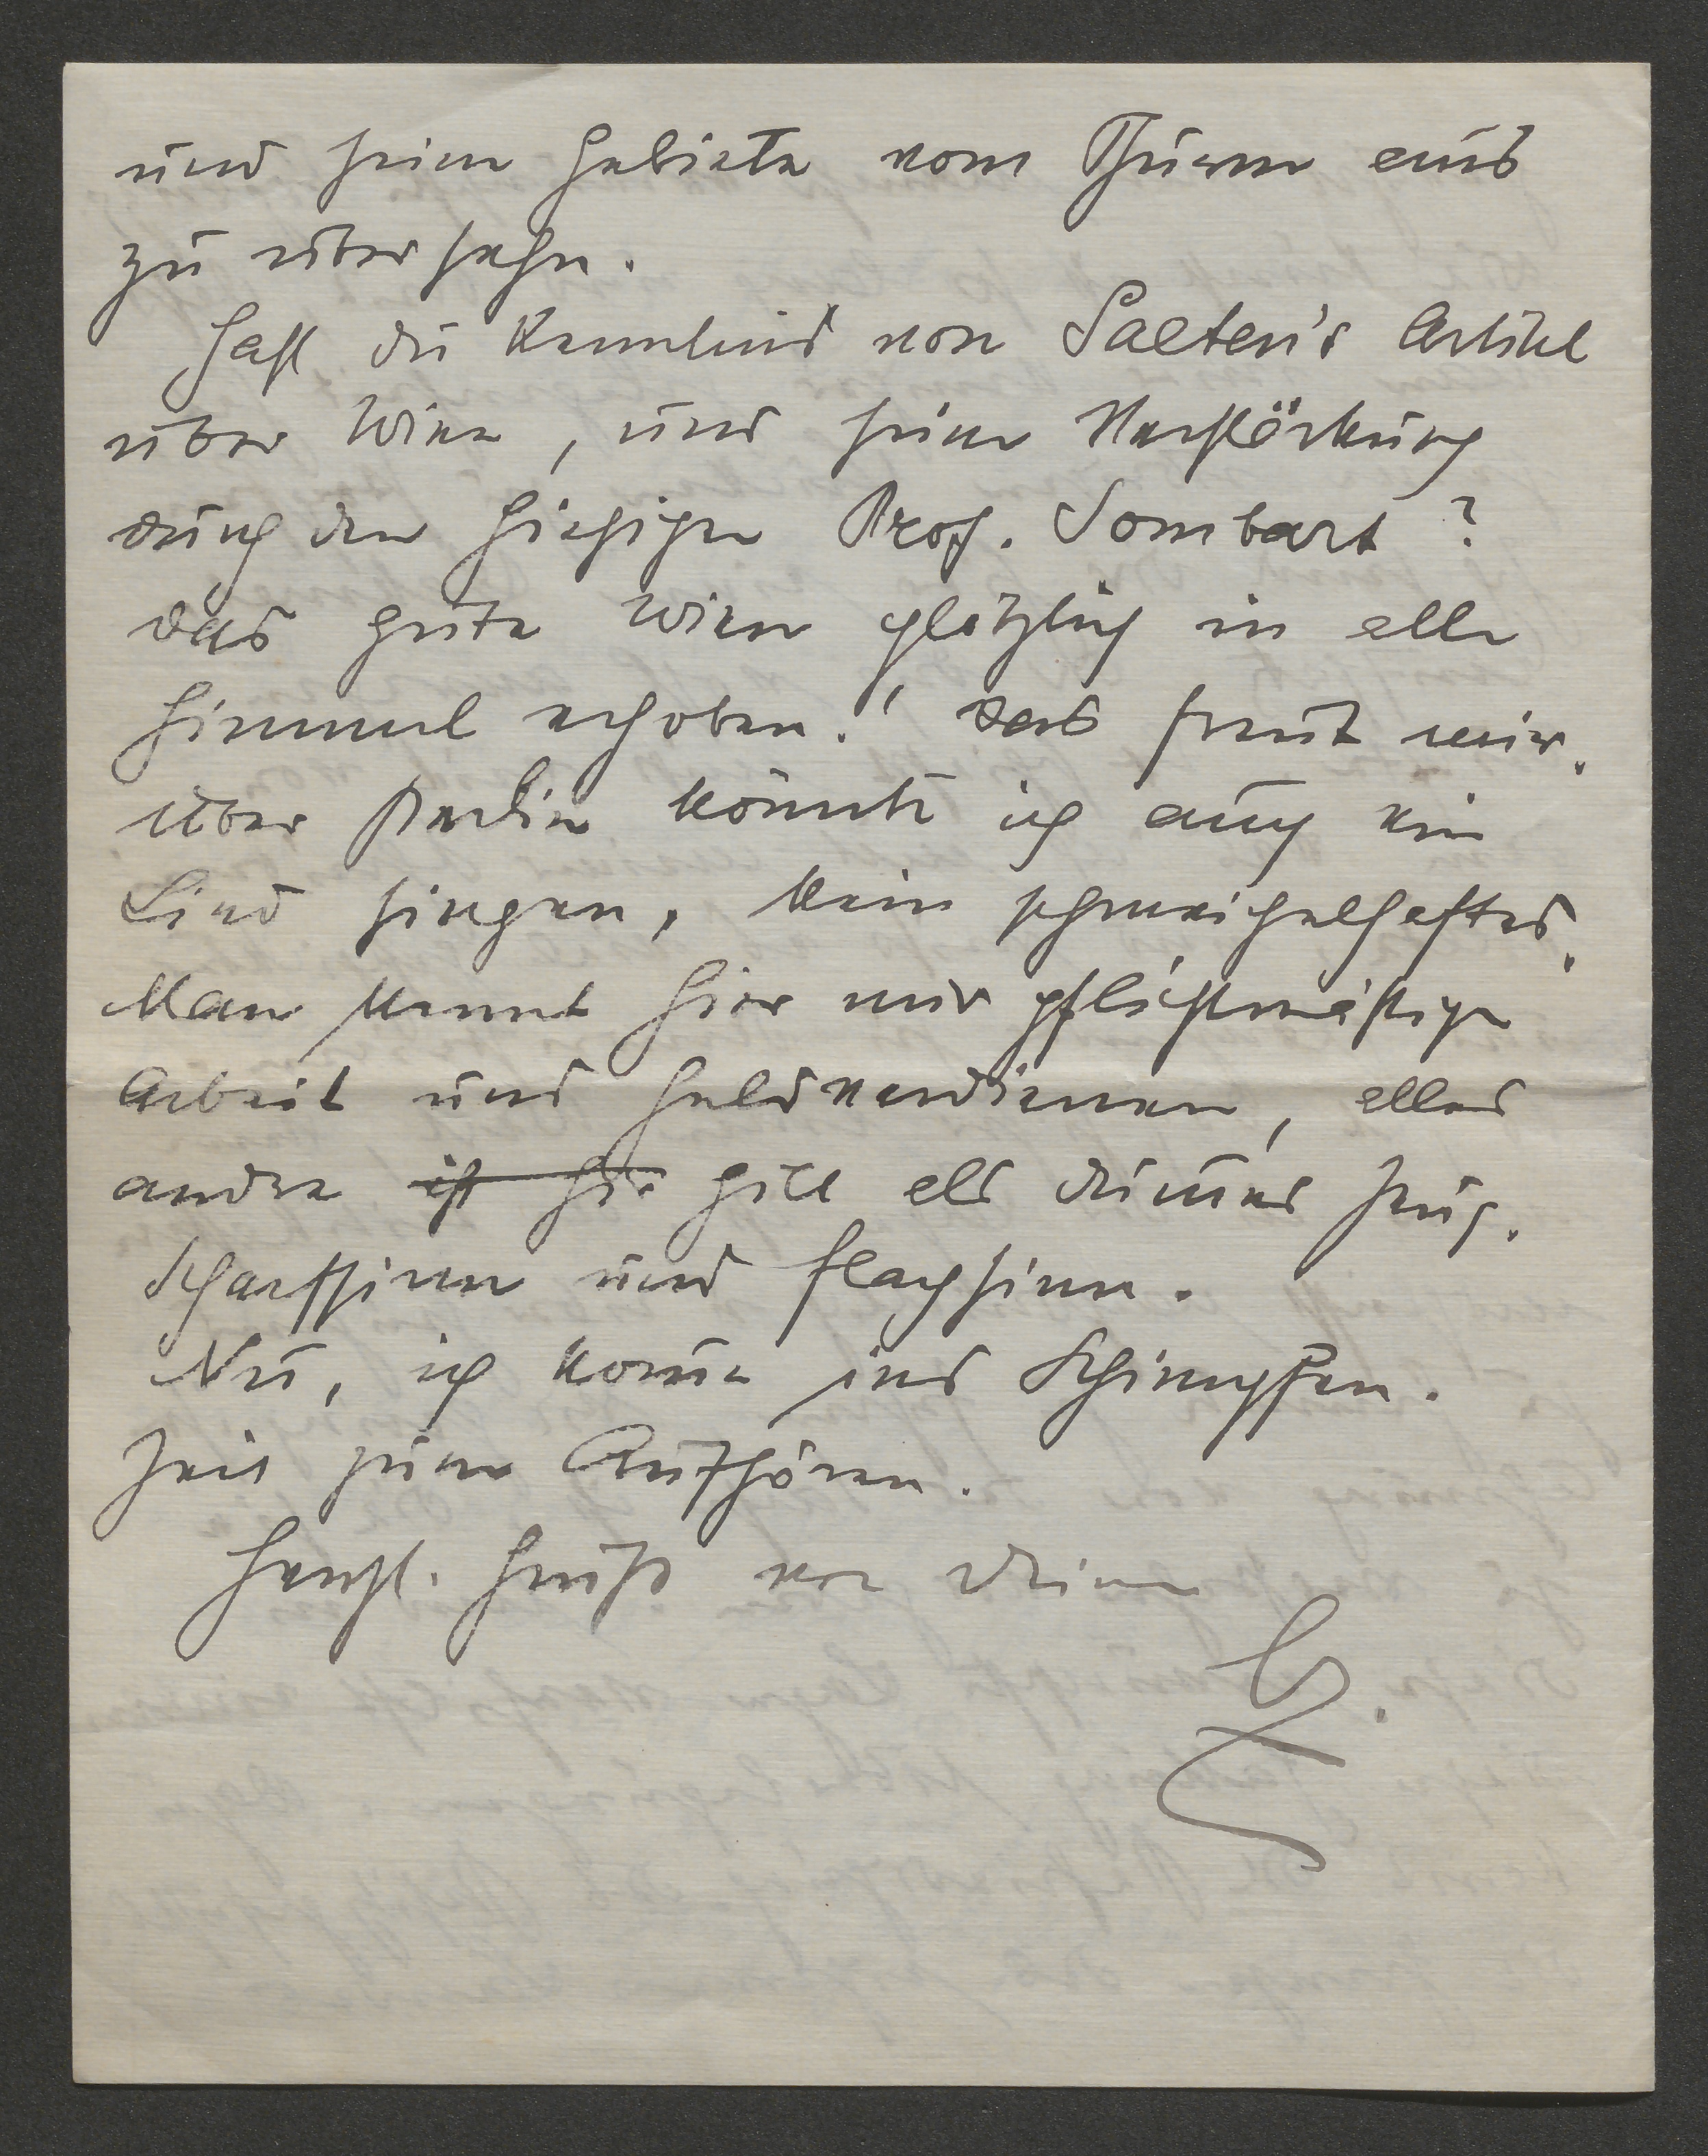 und seine Gebiete vom Thurm aus
zu übersehn.
Hast du Kenntnis von Salten's Artikel
über Wien, und seine Verstärkung
durch den hiesigen Prof. Sombart?
das gute Wien plötzlich in alle
Himmel erhoben! das freut mir.
über Berlin könnte ich auch ein
Lied singen, kein schmeichelhaftes.
Man kennt hier nur pflichtmäßige
Arbeit und Geldverdienen, alles
andre ist hie gilt als dum̅es Zeug.
Scharfsinn und Flachsinn.
Nu, ich kom̅e ins Schimpfen.
Zeit zum Aufhören.
Herzl. Gruß von deinem